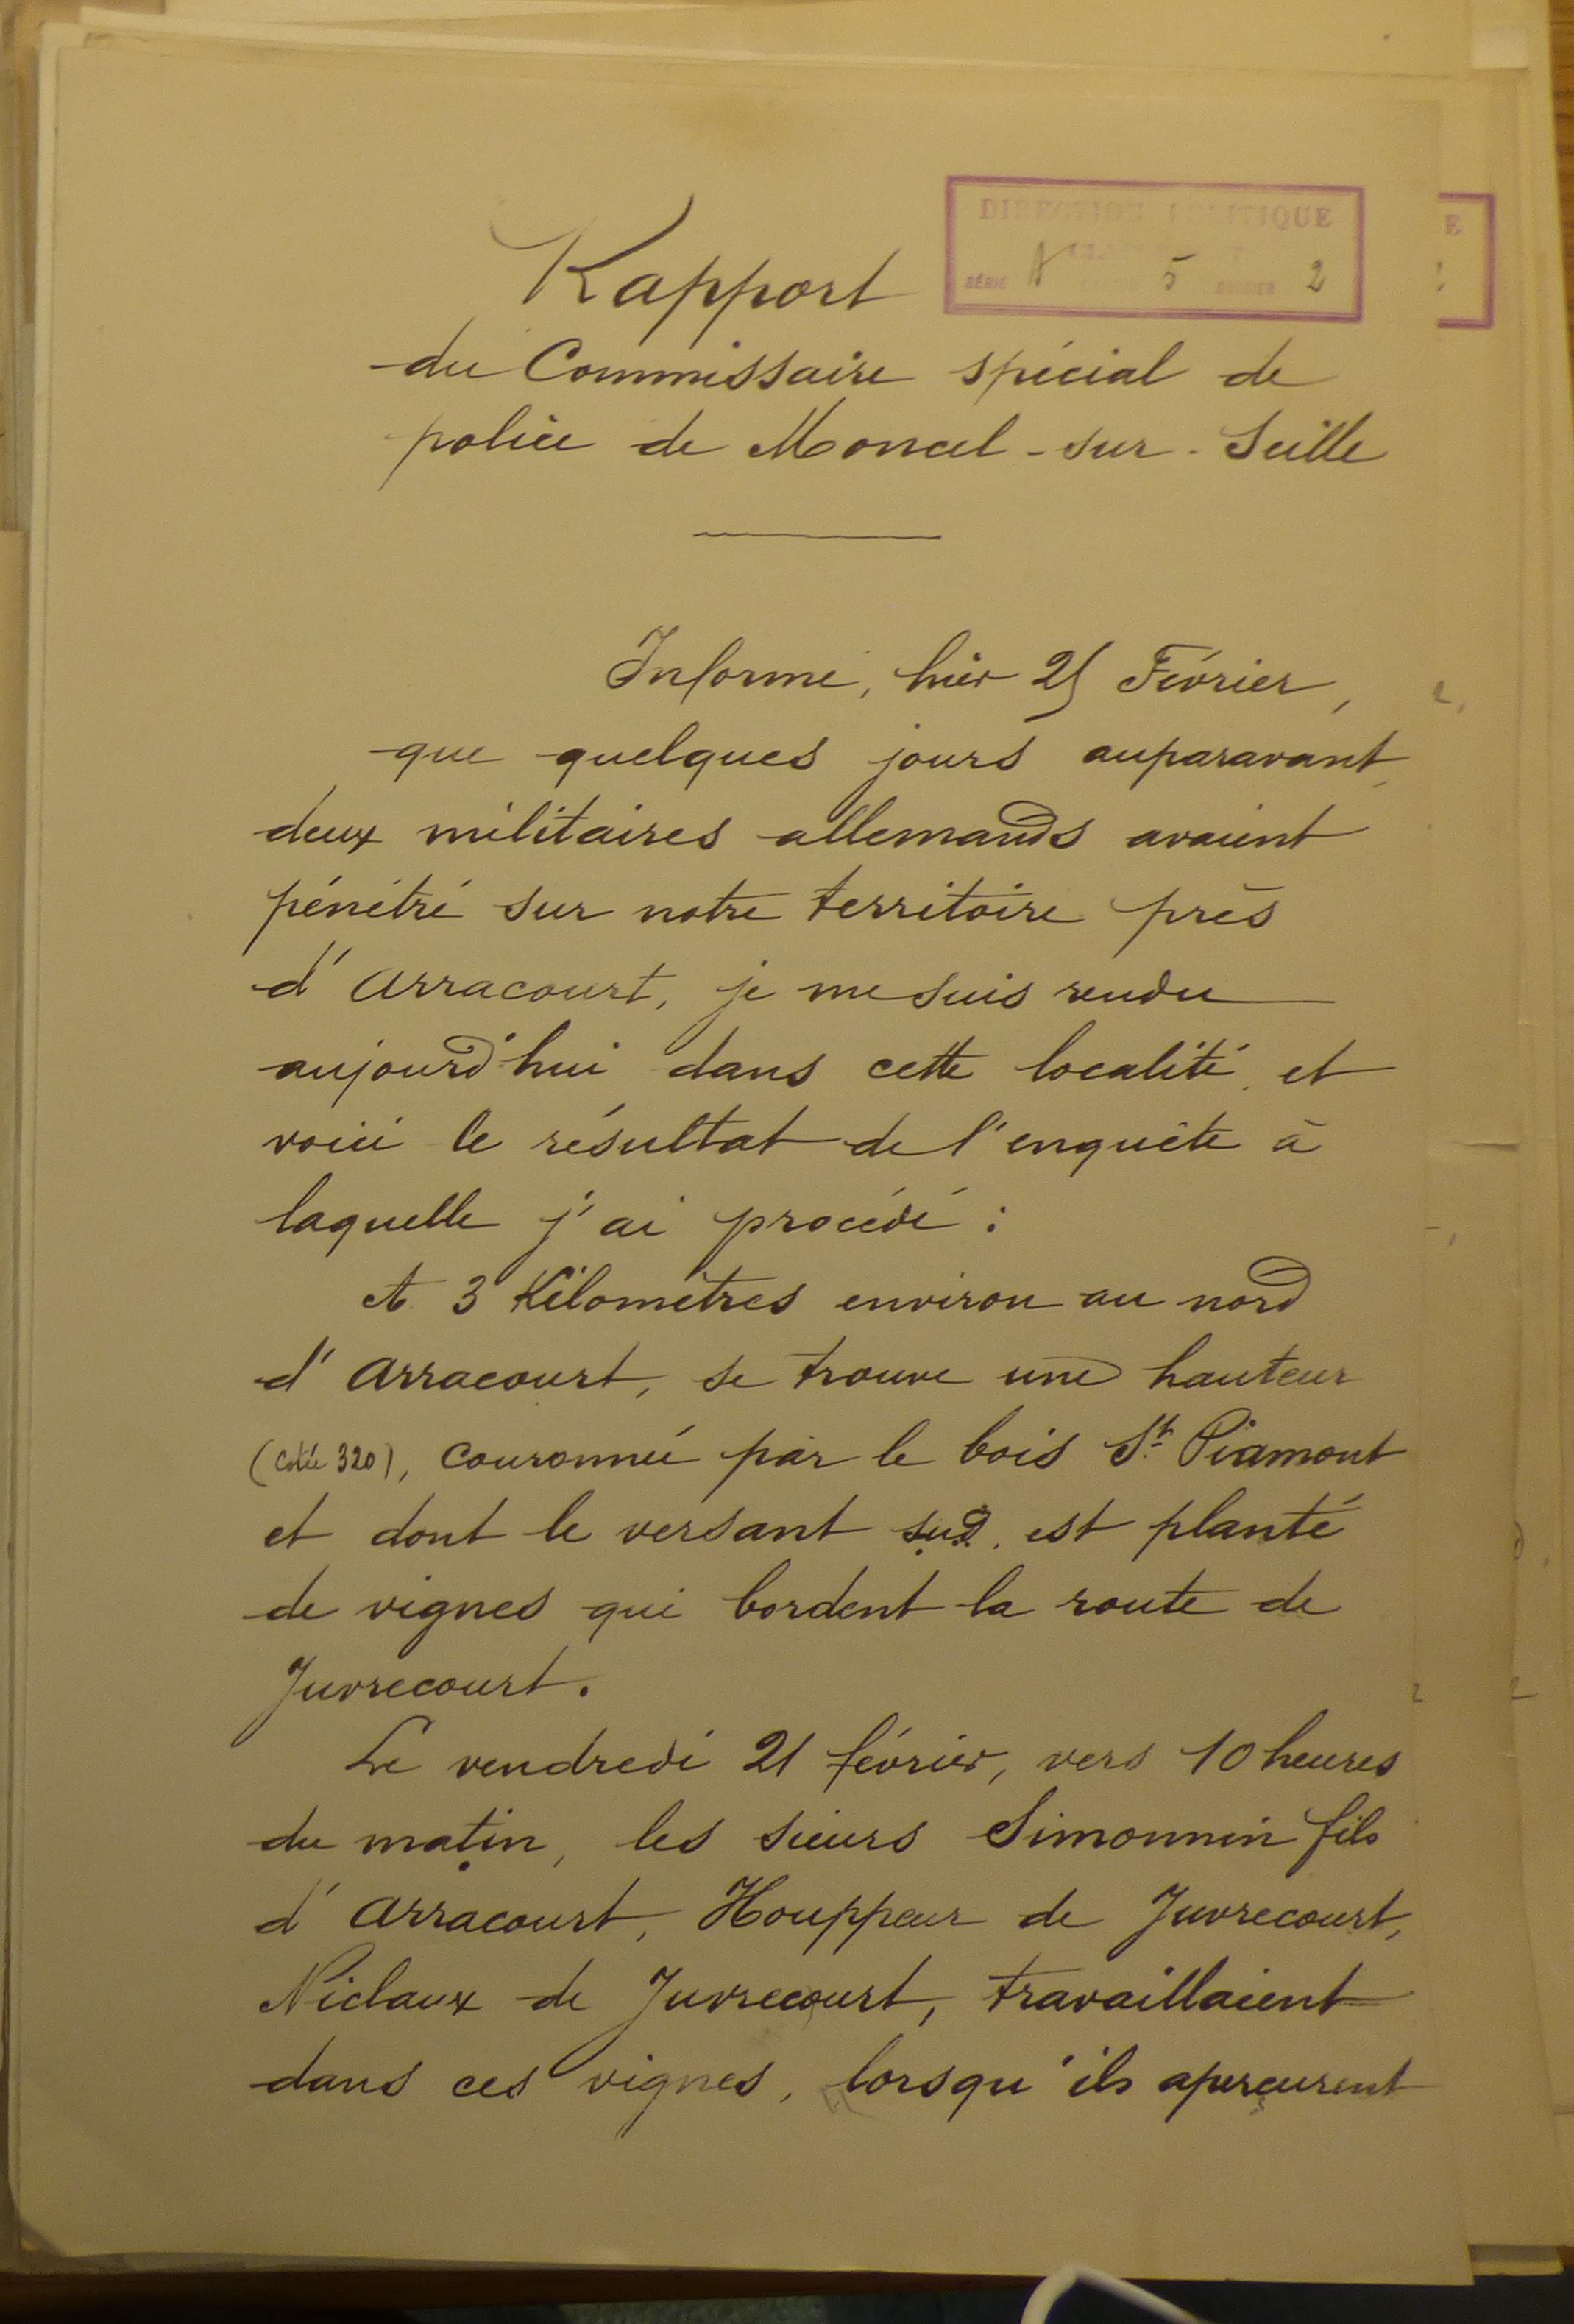 DIRECTION POLITIQUE
SÉRIE A 5 DOSSIER 2
Rapport
du Commissaire spécial de
police de Moncel-sur-Seille
Informé, hier 25 Février,
que quelques jours auparavant,
deux militaires allemands avaient
pénétré sur notre territoire près
d'Arracourt, je me suis rendu
aujourd'hui dans cette localité et
voici le résultat de l'enquête à
laquelle j'ai procédé :
A 3 Kilomètres environ au nord
d'Arracourt, se trouve une hauteur
(cotée 320), couronnée par le bois St Piamont
et dont le versant sud est planté
de vignes qui bordent la route de
Juvrecourt.
Le vendredi 21 février, vers 10 heures
du matin, les sieurs Simonnin fils
d'Arracourt, Houppeur de Juvrecourt,
Niclaux de Juvrecourt, travaillaient
dans ces vignes, lorsqu'ils aperçurent